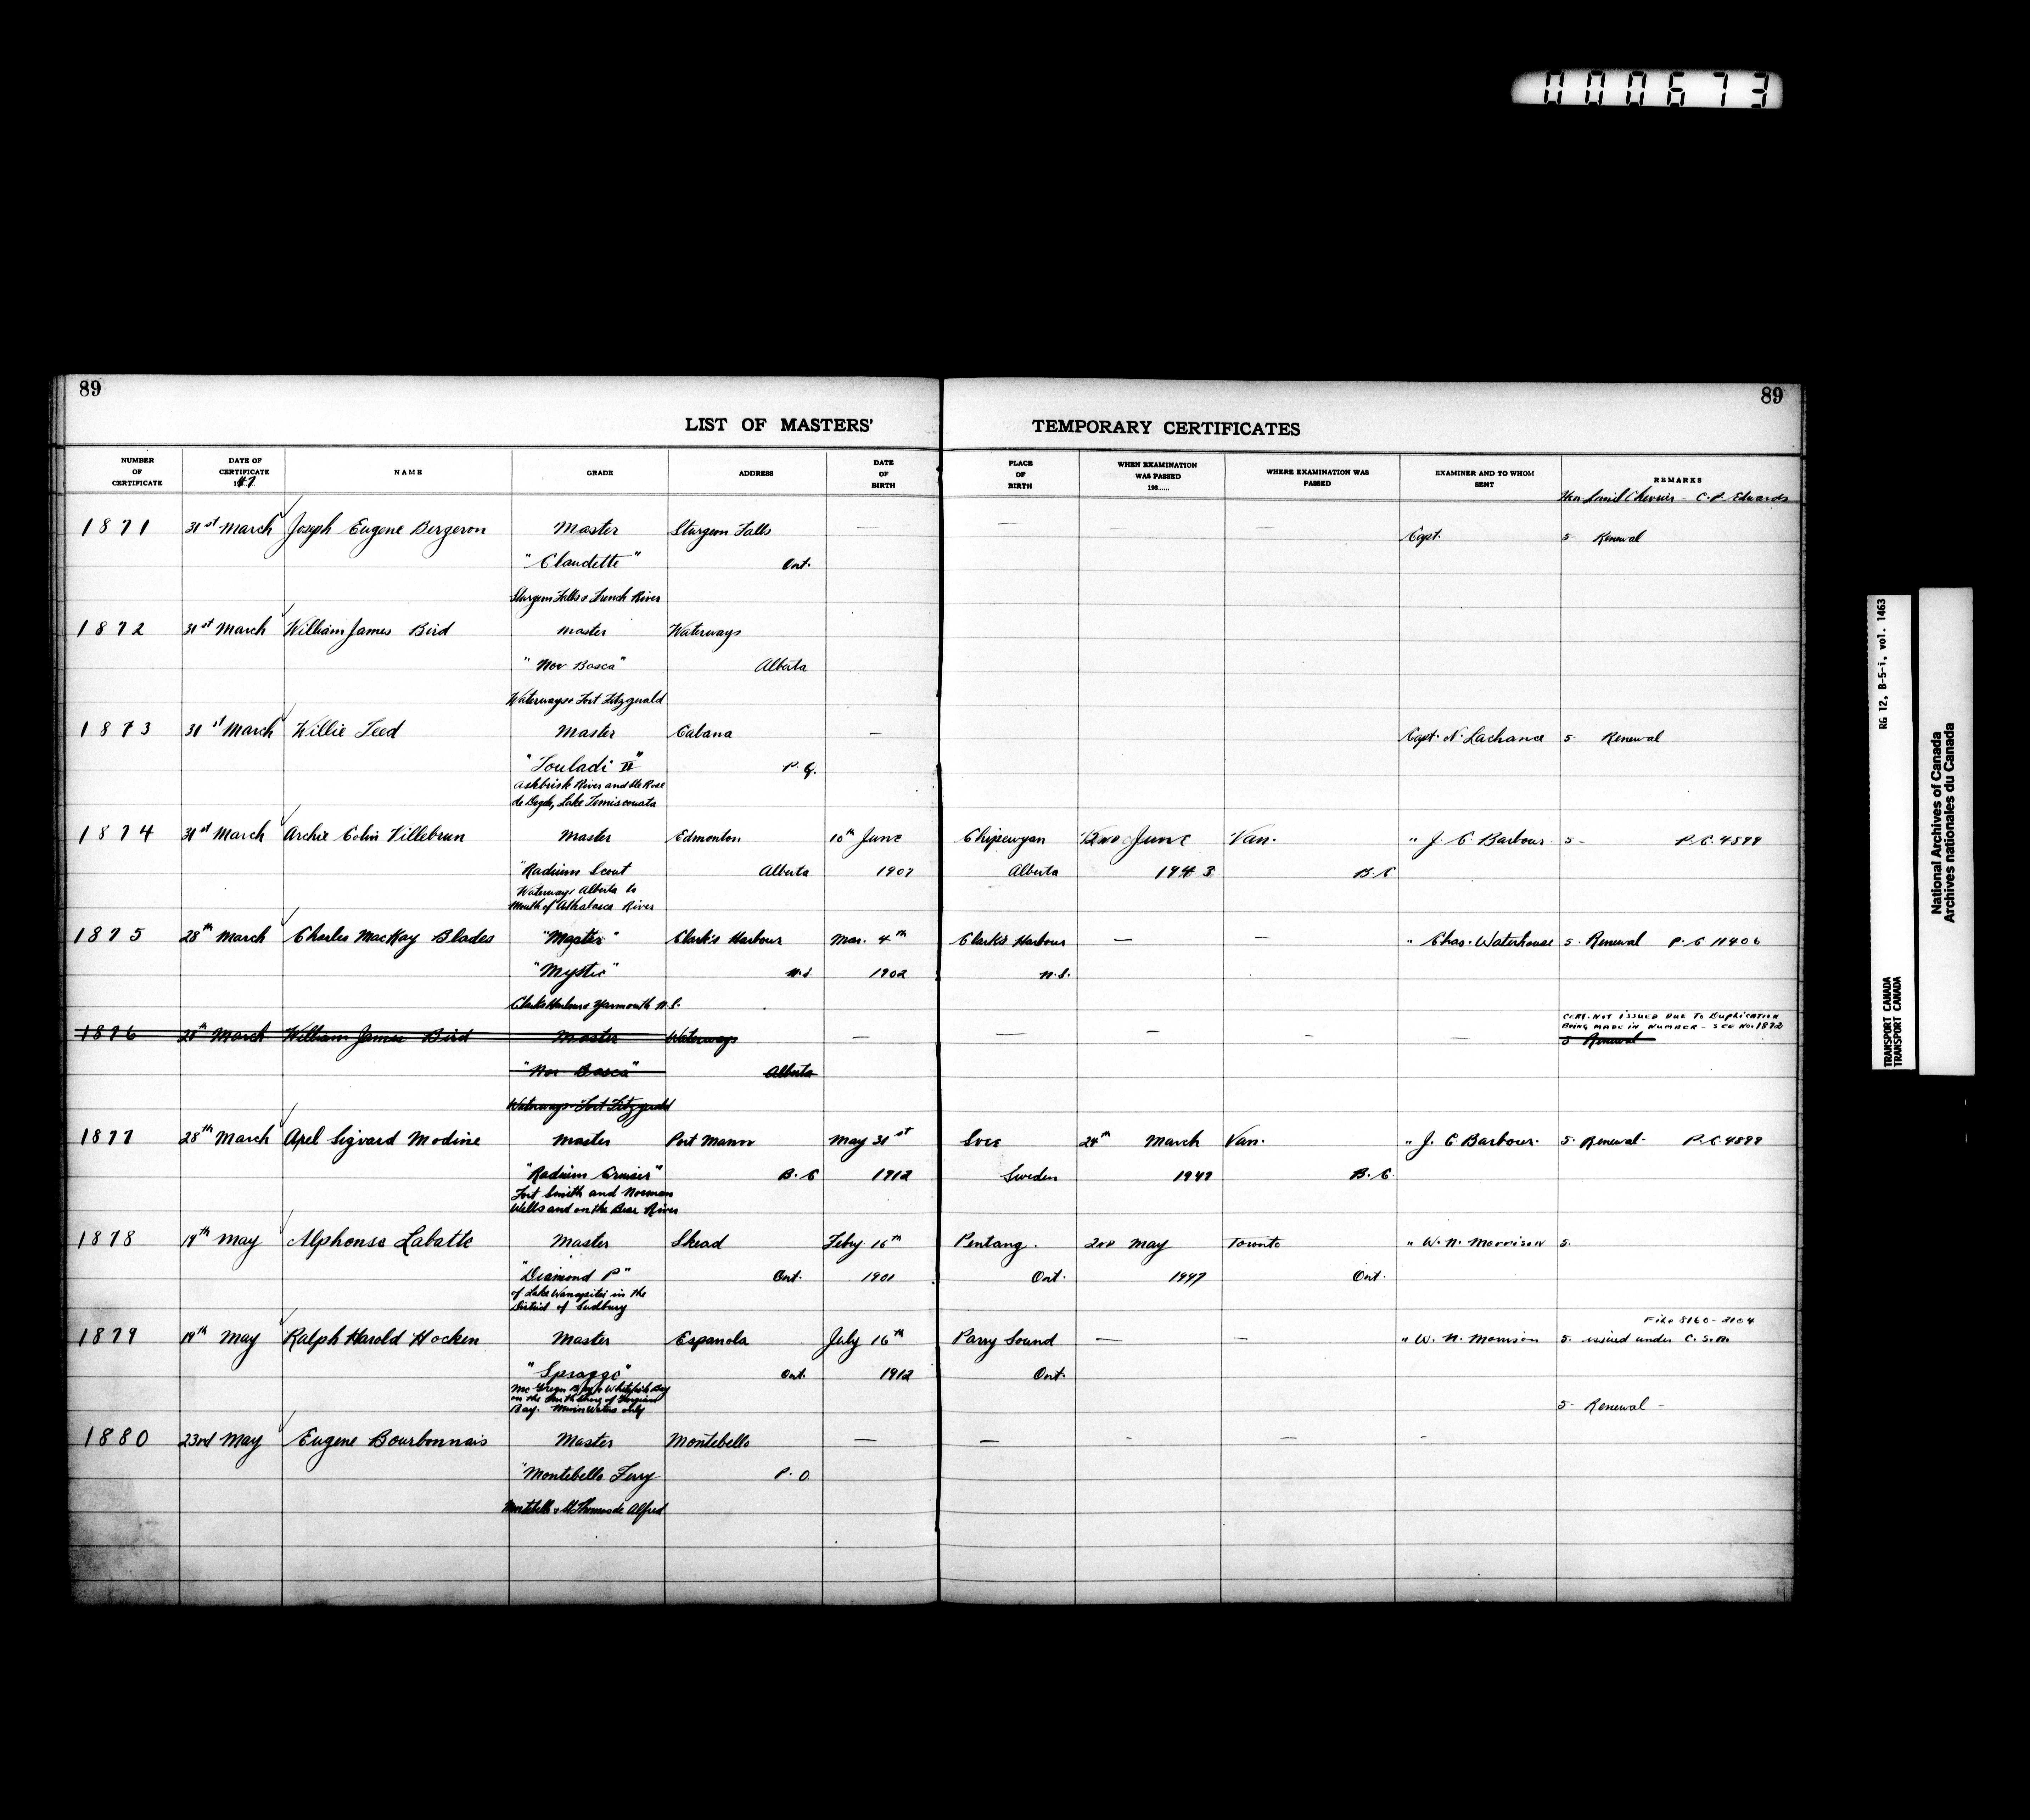 000673
89
89
LIST OF MASTERS' TEMPORARY CERTIFICATES
NUMBER OF CERTIFICATE
DATE OF CERTIFICATE 47
NAME
GRADE
ADDRESS
DATE OF BIRTH
PLACE OF BIRTH
WHEN EXAMINATION WAS PASSED 193......
WHERE EXAMINATION WAS PASSED
EXAMINER AND TO WHOM SENT
REMARKS
Hon Lionel Chevrier - C.P. Edwards
1871 31st March Joseph Eugene Bergeron Master Sturgeon Falls — — — — Capt. 5 Renewal
"Claudette" Ont.
Sturgeon Falls & French River
1872 31st March William James Bird Master Waterways
"Nor Basca" Alberta
Waterways & Fort Fitzgerald
1873 31st March Willie Leed Master Cabana — Capt. N. Lachance 5- Renewal
"Touladi II" P.Q.
Ashbirish River and Ste Rose
de Degele, Lake Temiscouata
1874 31st March Archie Colin Villebrun Master Edmonton 10th June Chipewyan 2nd June Van. " J. C. Barbour 5- P.C. 4899
"Radium Scout Alberta 1907 Alberta 1943 B.C
Waterways Alberta to
Mouth of Athabasca River
1875 28th March Charles MacKay Blades "Master" Clark's Harbour Mar. 4th Clarks Harbour — — " Chas. Waterhouse 5. Renewal P.C 11406
"Mystic" N.S. 1902 N.S.
Clarks Harbour & Yarmouth N.S.
CERT. NOT ISSUED DUE TO DUPLICATION
BEING MADE IN NUMBER - SEE NO. 1872
1876 28th March William James Bird Master Waterways — — — — — 5 Renewal
"Nor Basca" Alberta
Waterways Fort Fitzgerald
1877 28th March Axel Sigvard Modine Master Port Mann May 31st 24th March Van. " J. C. Barbour. 5. Renewal- P.C. 4899
"Radium Cruiser" B.C 1912 Sweden 1947 B.C.
Fort Smith and Norman
Wells and on the Bear River
1878 19th May Alphonse Labatte Master Skead Feby 16th Pentang. 2nd May Toronto " W. N. Morrison 5.
"Diamond P" Ont. 1901 Ont. 1947 Ont.
of Lake Wanapitei in the
District of Sudbury
File 8160-2104
1879 19th May Ralph Harold Hocken Master Espanola July 16th Parry Sound — — " W. N. Morrison 5. issued under C.S.M.
"Spragge" Ont. 1912 Ont.
Mc Gregor Bay & Whitefish Bay
on the North Shore of Georgian
Bay. Minor Waters only
5- Renewal -
1880 23rd May Eugene Bourbonnais Master Montebello — — - — -
"Montebello Ferry P.Q
Montebello & St Thomas de Alfred
RG 12, B-5-i, vol. 1463
TRANSPORT CANADA
TRANSPORT CANADA
National Archives of Canada
Archives nationales du Canada